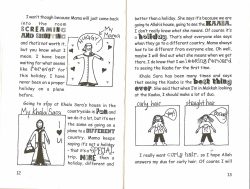 I won't though because Mama will just come back
into the room
SCREAMING
AND SHOUTING
and that's not worth it,
but you know what I
mean. I have been
waiting for what seems
like forever for
this holiday. I have
never been on a proper
holiday on a plane
before.
Going to stay at Khala Sara's house in the
countryside is fun and
we do it a lot, but it's not
the same as going on a
plane to a DIFFERENT
country. Mama keeps
saying it's not a holiday
- that it's a SPECIAL
trip, MORE than a
holiday, different and
My Khala Sara
I
U
12
better than a holiday. She says it's because we are
going to Allah's house, going to see the KAABA.
I don't really know what she means. Of course it's
a holiday. That's what everyone else says
when they go to a different country. Mama always
has to be different from everyone else. Oh well,
maybe I will find out what she means when I get
there. I do know that I am looking forward
to seeing the Kaaba for the first time.
Khala Sara has been many times and says
that seeing the Kaaba is the best thing
ever. She said that when I'm in Makkah looking
at the Kaaba, I should make a lot of dua.
curly hair
straight hair
I really want curly hair, so I hope Allah
answers my dua for that. Of course I will
13